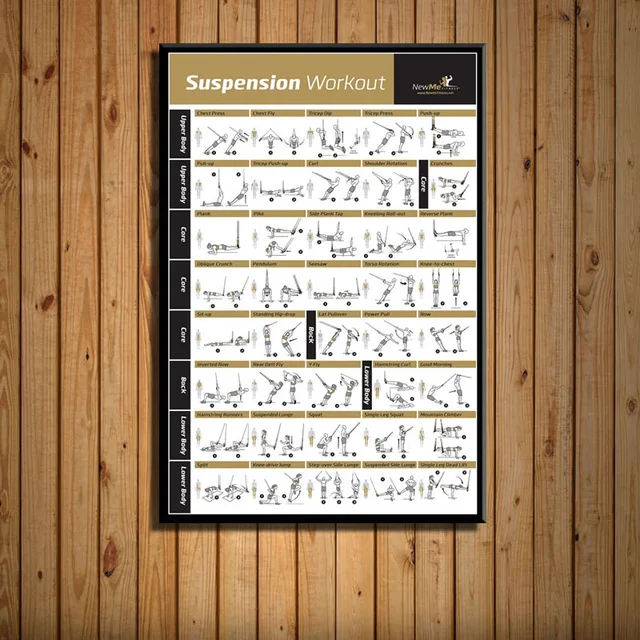 Suspension Workout
NewMe
FITNESS
www.NewMeFitness.net
Upper Body
Chest Press
Chest Fly
Tricep Dip
Tricep Press
Push-up
Upper Body
Pull-up
Tricep Push-up
Curl
Shoulder Rotation
Core
Crunches
Core
Plank
Pike
Side Plank Tap
Kneeling Roll-out
Reverse Plank
Core
Oblique Crunch
Pendulum
Seesaw
Torso Rotation
Knee-to-chest
Core
Sit-up
Standing Hip-drop
Back
Lat Pullover
Power Pull
Row
Back
Inverted Row
Rear Delt Fly
Y-Fly
Lower Body
Hamstring Curl
Good Morning
Lower Body
Hamstring Runners
Suspended Lunge
Squat
Single Leg Squat
Mountain Climber
Lower Body
Split
Knee-drive Jump
Step-over Side Lunge
Suspended Side Lunge
Single Leg Dead Lift